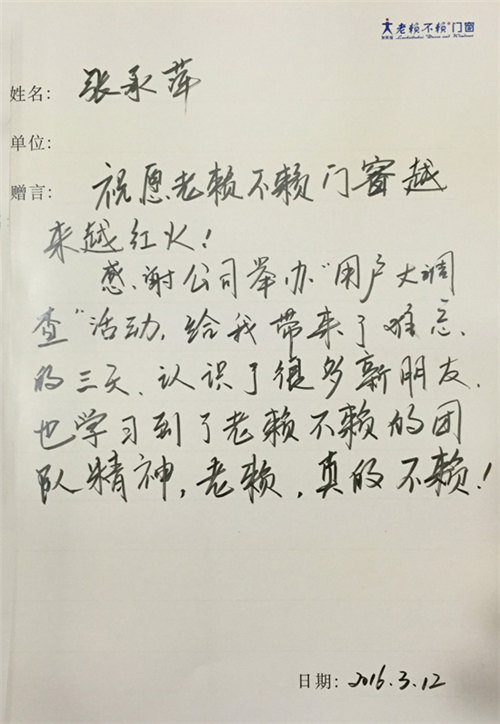 老赖不赖门窗
姓名: 张承萍
单位:
赠言: 祝愿老赖不赖门窗越
来越红火!
感谢公司举办“用户大调
查”活动,给我带来了难忘
的三天、认识了很多新朋友,
也学习到了老赖不赖的团
队精神,老赖,真的不赖!
日期: 2016.3.12